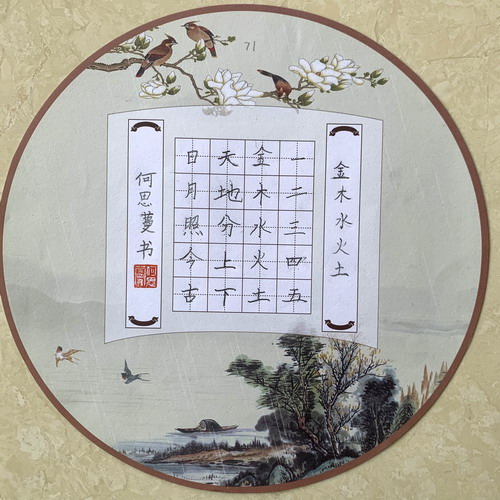 71
金木水火土
一二三四五
金木水火土
天地分上下
日月照今古
何思蔓书